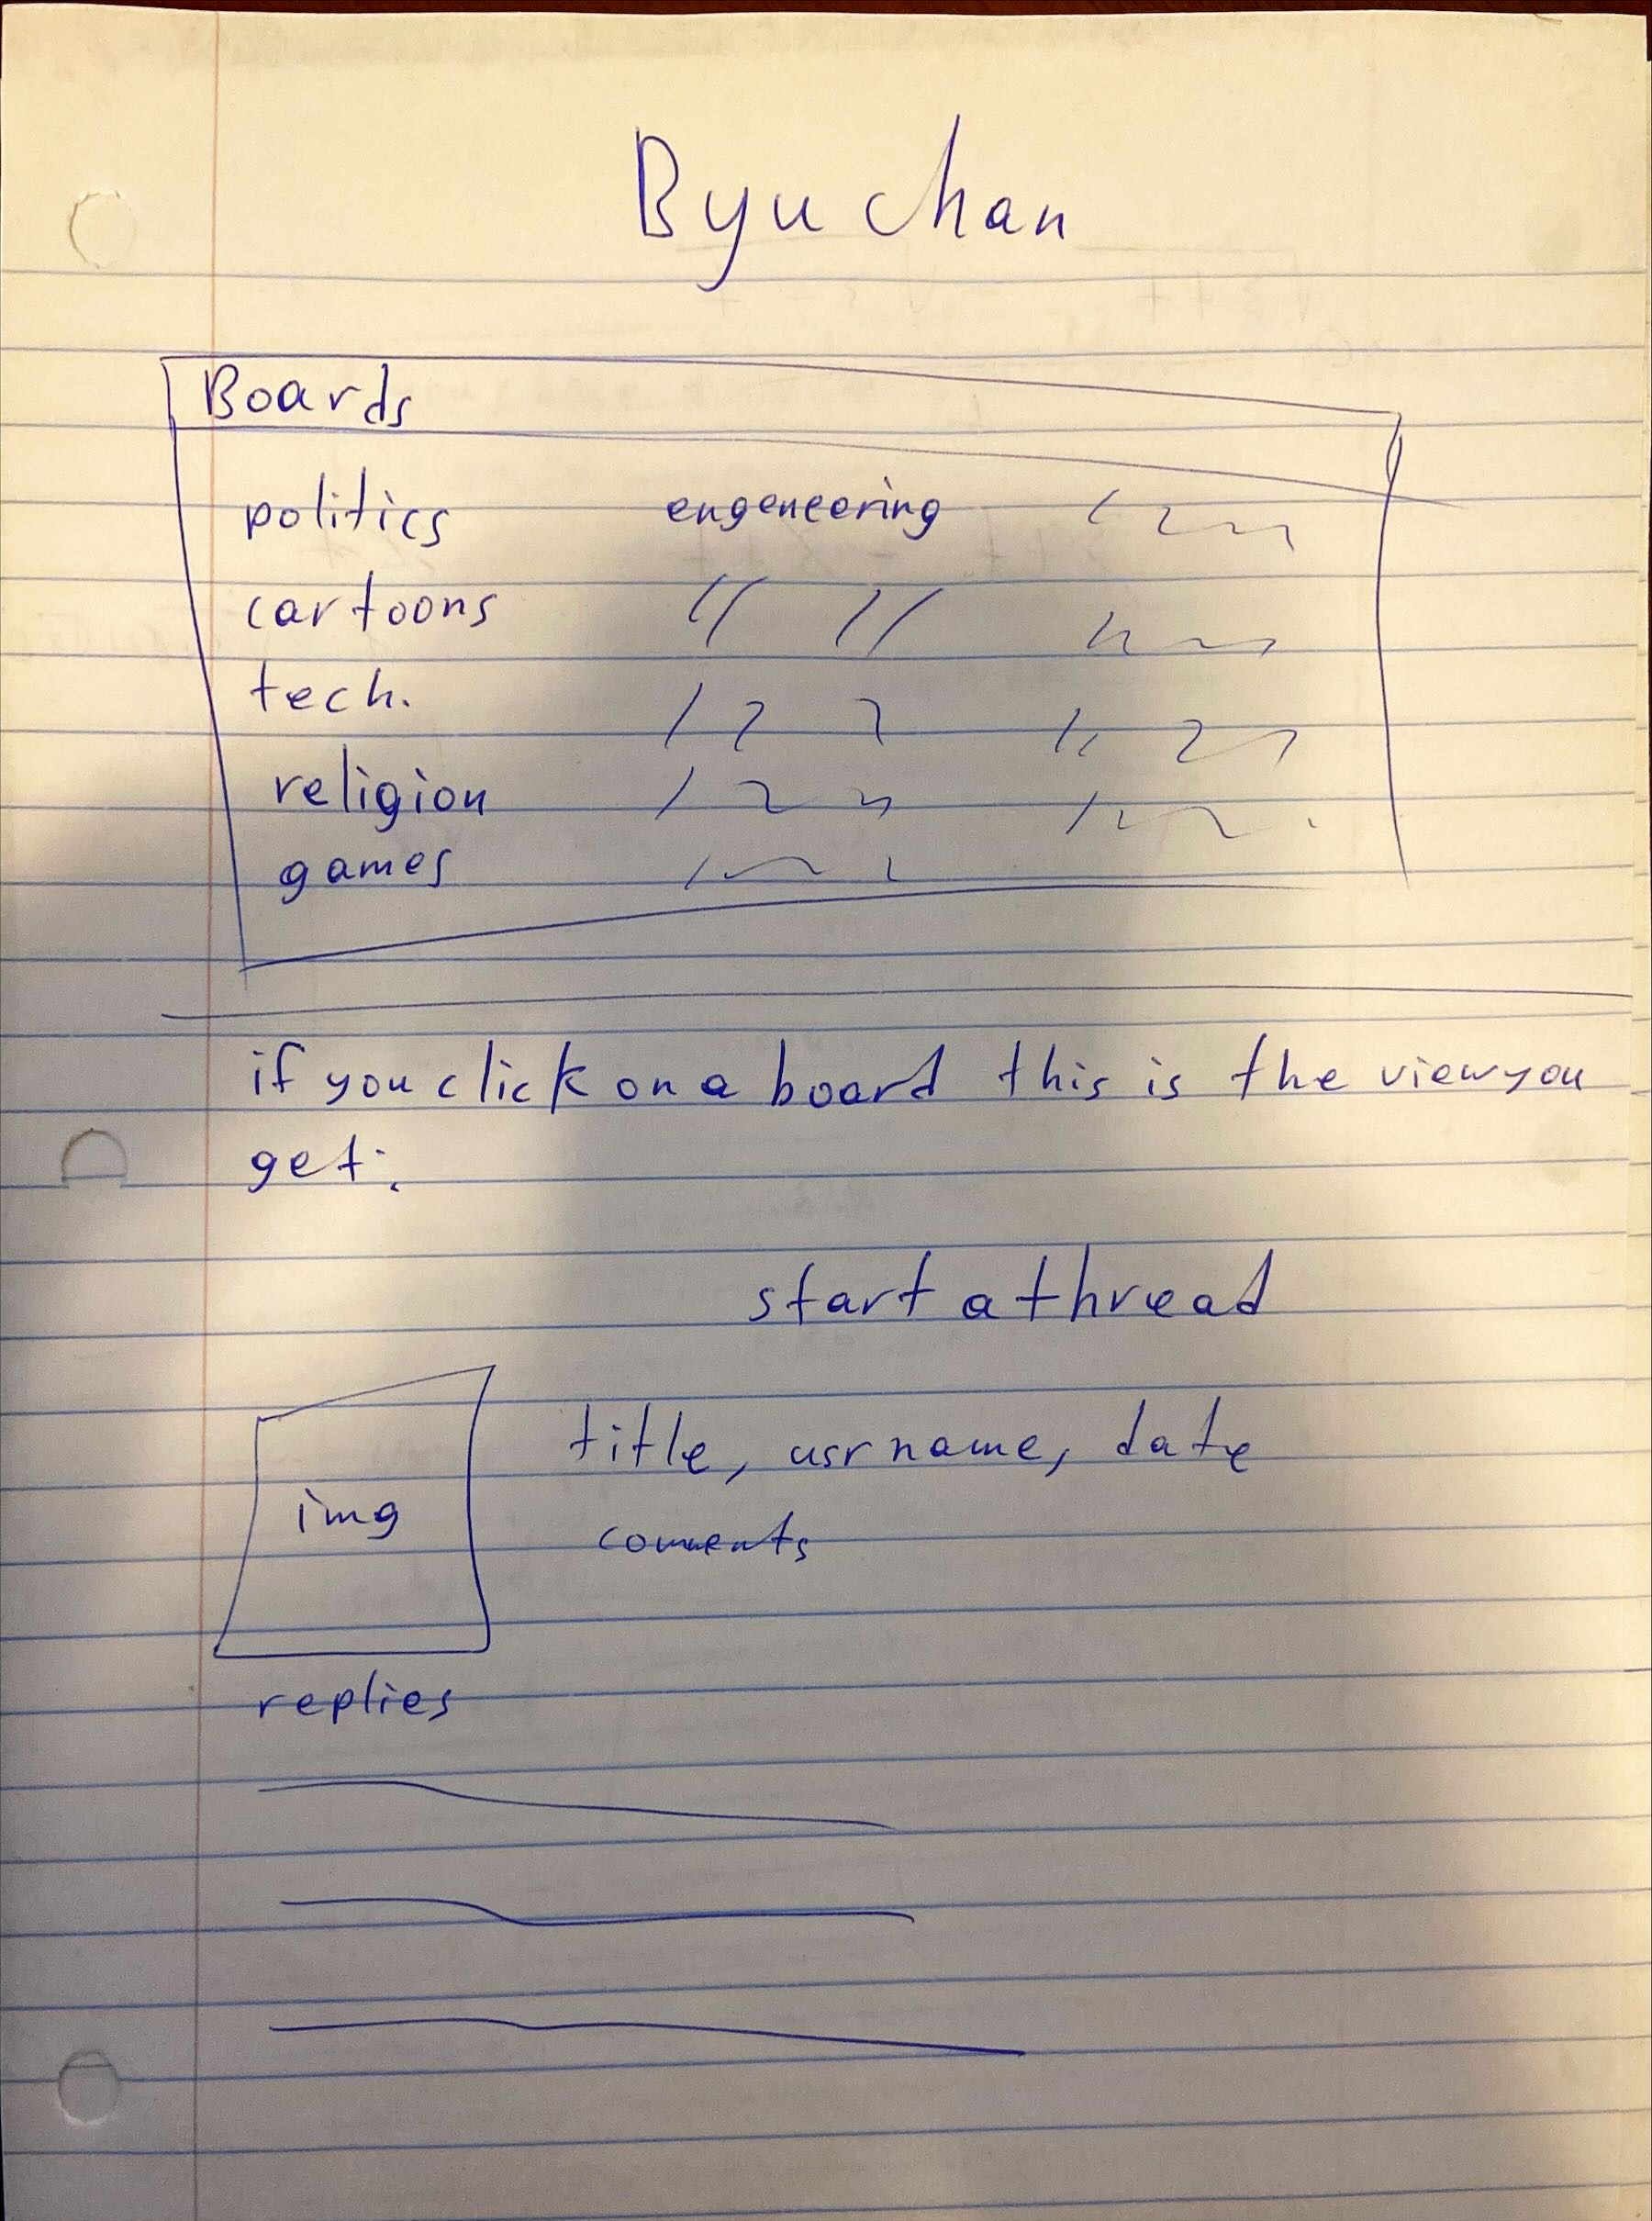 Byuchan
Boards
politics engeneering
cartoons
tech.
religion
games
if you click on a board this is the view you
get:
start a thread
img
title, usrname, date
comments
replies